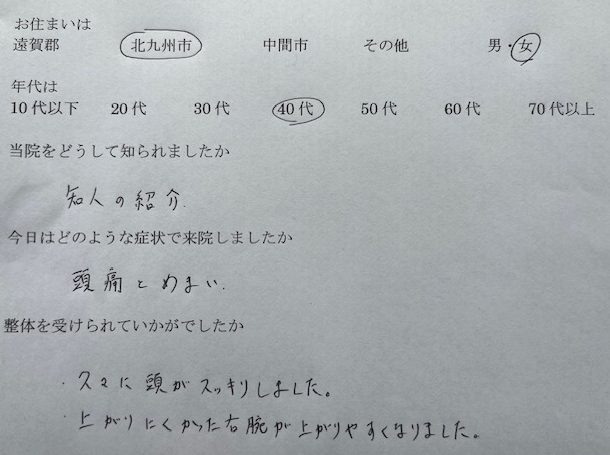 お住まいは
遠賀郡 北九州市 中間市 その他 男・女
年代は
10代以下 20代 30代 40代 50代 60代 70代以上
当院をどうして知られましたか
知人の紹介.
今日はどのような症状で来院しましたか
頭痛とめまい.
整体を受けられていかがでしたか
・久々に頭がスッキリしました。
・上がりにくかった右腕が上がりやすくなりました。